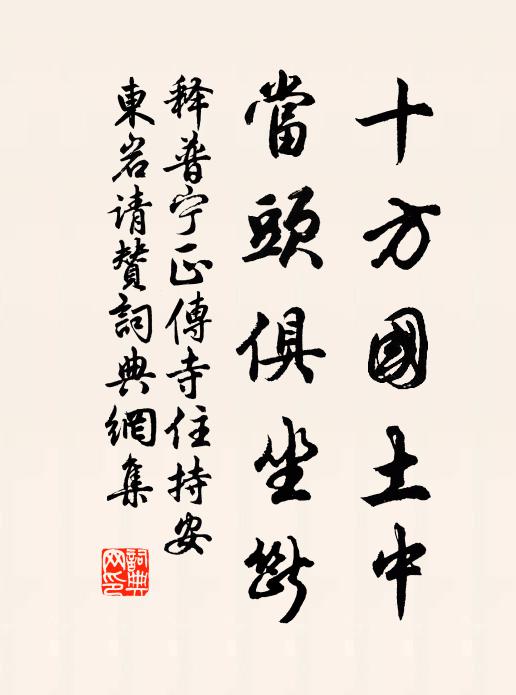 十方國土中
當頭俱坐斷
释普宁正傳寺住持安
東岩请贊詞典網集
詞典
网印